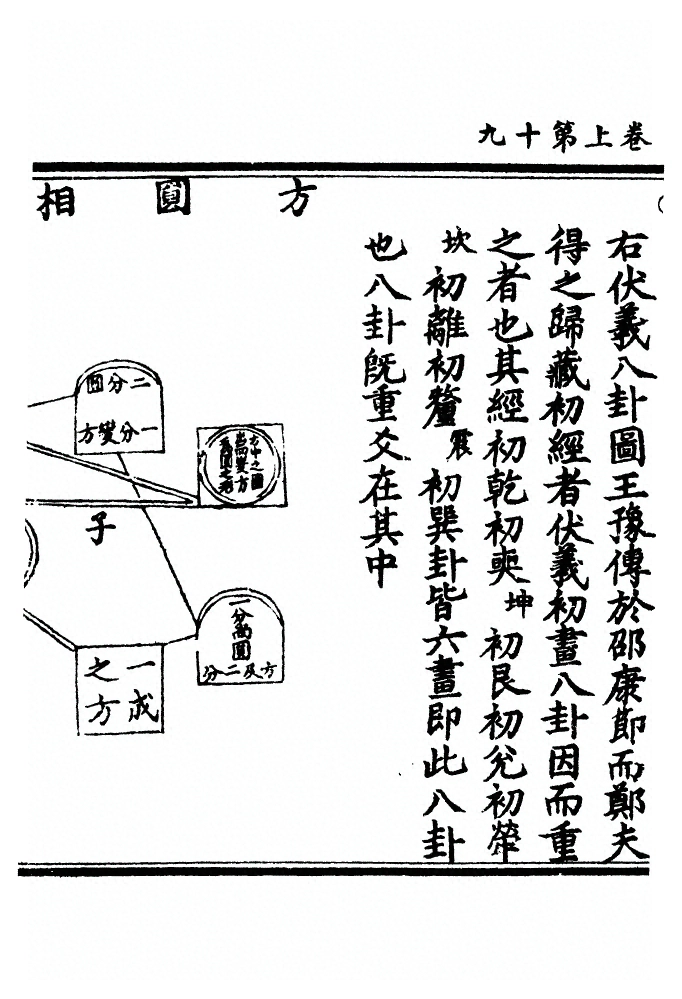 卷上第十九
右伏羲八卦圖王豫傳於邵康節而鄭夫
得之歸藏初經者伏羲初畫八卦因而重
之者也其經初乾初奭坤初艮初兌初犖
坎初離初釐震初巽卦皆六畫即此八卦
也八卦旣重爻在其中
方圓相
二分圓
一分變方
子
一分為圓
方及二分
一成
之方